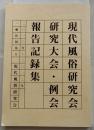 現代風俗研究会
研究大会・例会
報告記録集
現代風俗研究会